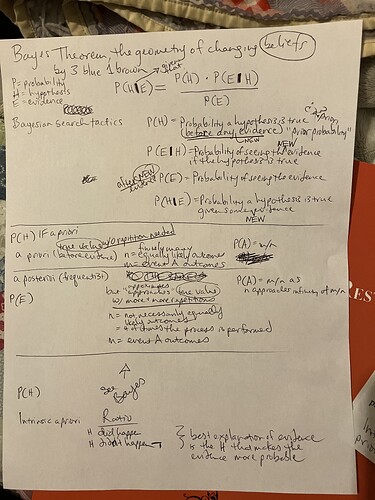 Bayes Theorem, the geometry of changing beliefs
by 3 blue 1 brown
P = probability
H = hypothesis
E = evidence
P(H|E) = P(H) · P(E|H)
P(E)
given
Bayesian Search tactics
P(H) = Probability a hypothesis is true
(before any evidence) "Prior probability"
NEW
P(E|H) = Probability of seeing the evidence
if the hypothesis is true
NEW
P(E) = Probability of seeing the evidence
P(H|E) = Probability a hypothesis is true
given some evidence
NEW
P(H) IF a priori
true value w/o repetition needed
a priori (before evidence)
finitely many
n = equally likely outcome
m = event A outcomes
P(A) = m/n
a posteriori (frequentist)
but "approaches" true value
w/ more + more repetitions
P(A) = m/n as
n approaches infinity of m/n
P(E)
n = not necessarily equally
likely outcomes
= # of times the process is performed
m = event A outcomes
see Bayes
P(H)
Intrinsic a priori
Ratio
H did happen
H didn't happen
best explanation of evidence
is the H that makes the
evidence more probable